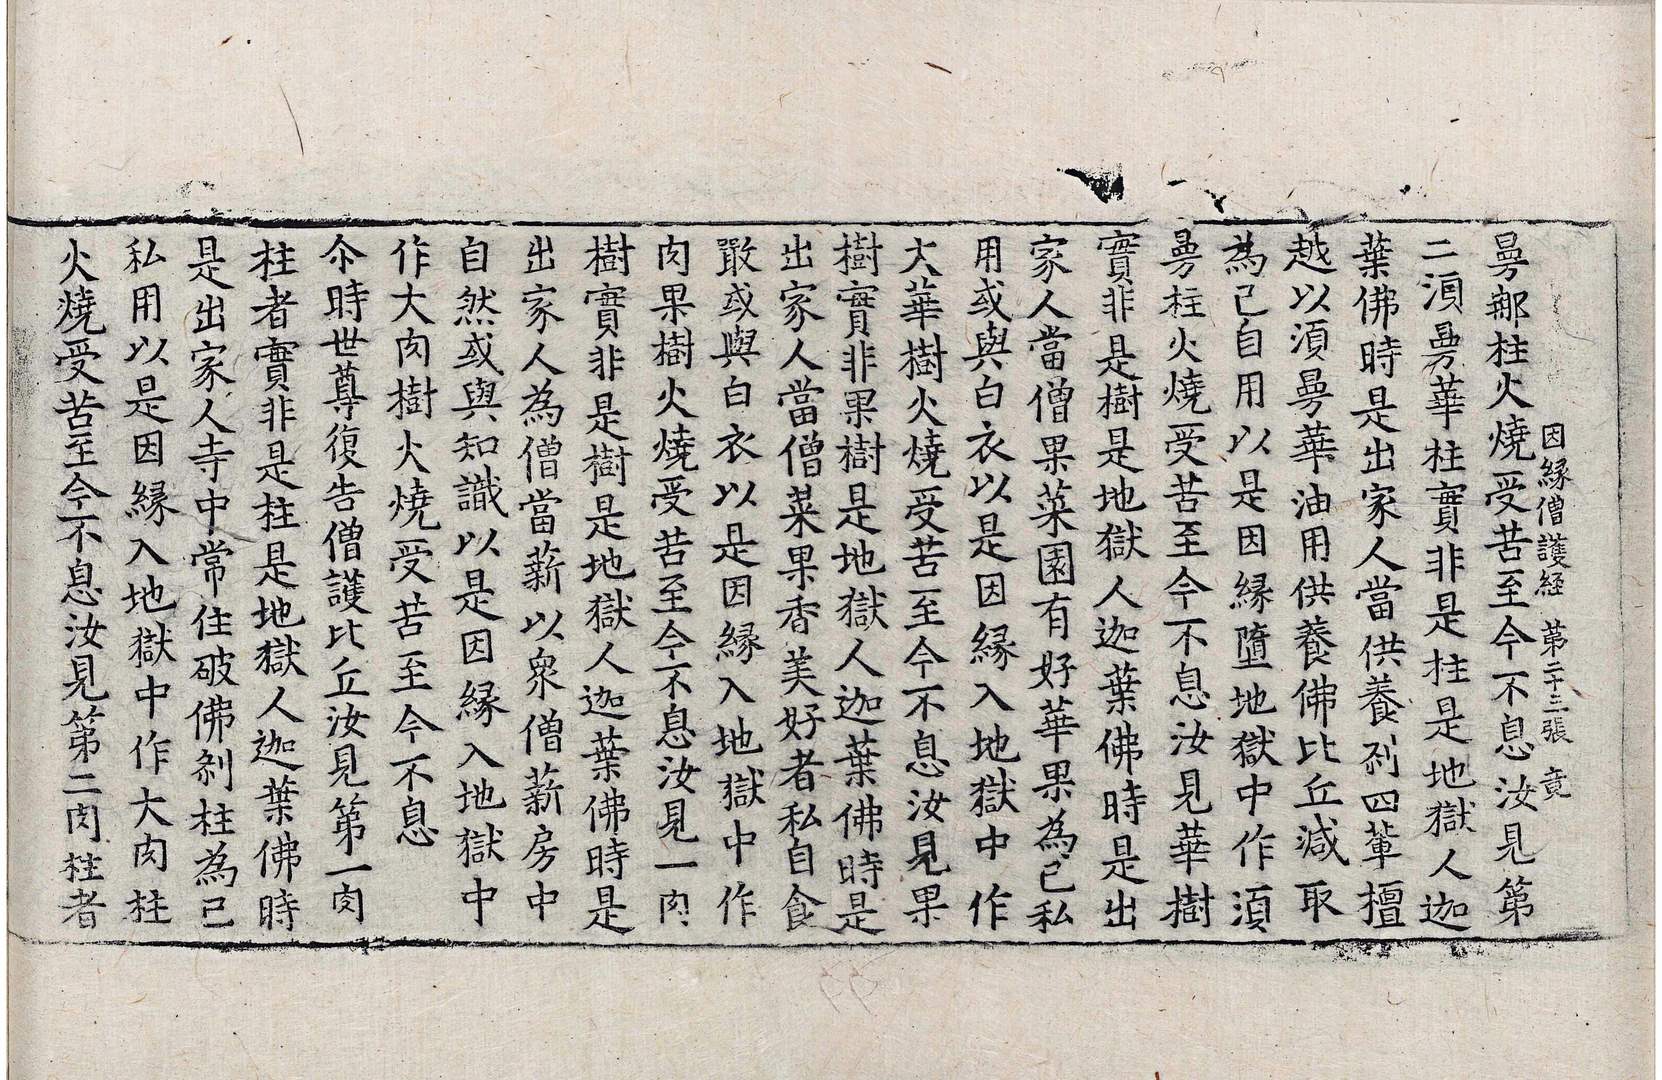 因縁僧護経 第二十三張 竟
曼那柱火燒受苦至今不息汝見第
二湏曼華柱實非是柱是地獄人迦
葉佛時是出家人當供養刹四軰檀
越以須曼華油用供養佛比丘減取
為己自用以是因縁墮地獄中作湏
曼柱火燒受苦至今不息汝見華樹
實非是樹是地獄人迦葉佛時是出
家人當僧果菜園有好華果為己私
用或與白衣以是因縁入地獄中作
大華樹火燒受苦至今不息汝見果
樹實非果樹是地獄人迦葉佛時是
出家人當僧菜果香美好者私自食
噉或與白衣以是因縁入地獄中作
肉果樹火燒受苦至今不息汝見一肉
樹實非是樹是地獄人迦葉佛時是
出家人為僧當薪以衆僧薪房中
自然或與知識以是因縁入地獄中
作大肉樹火燒受苦至今不息
尒時世尊復告僧護比丘汝見第一肉
柱者實非是柱是地獄人迦葉佛時
是出家人寺中常住破佛刹柱為己
私用以是因縁入地獄中作大肉柱
火燒受苦至今不息汝見第二肉柱者